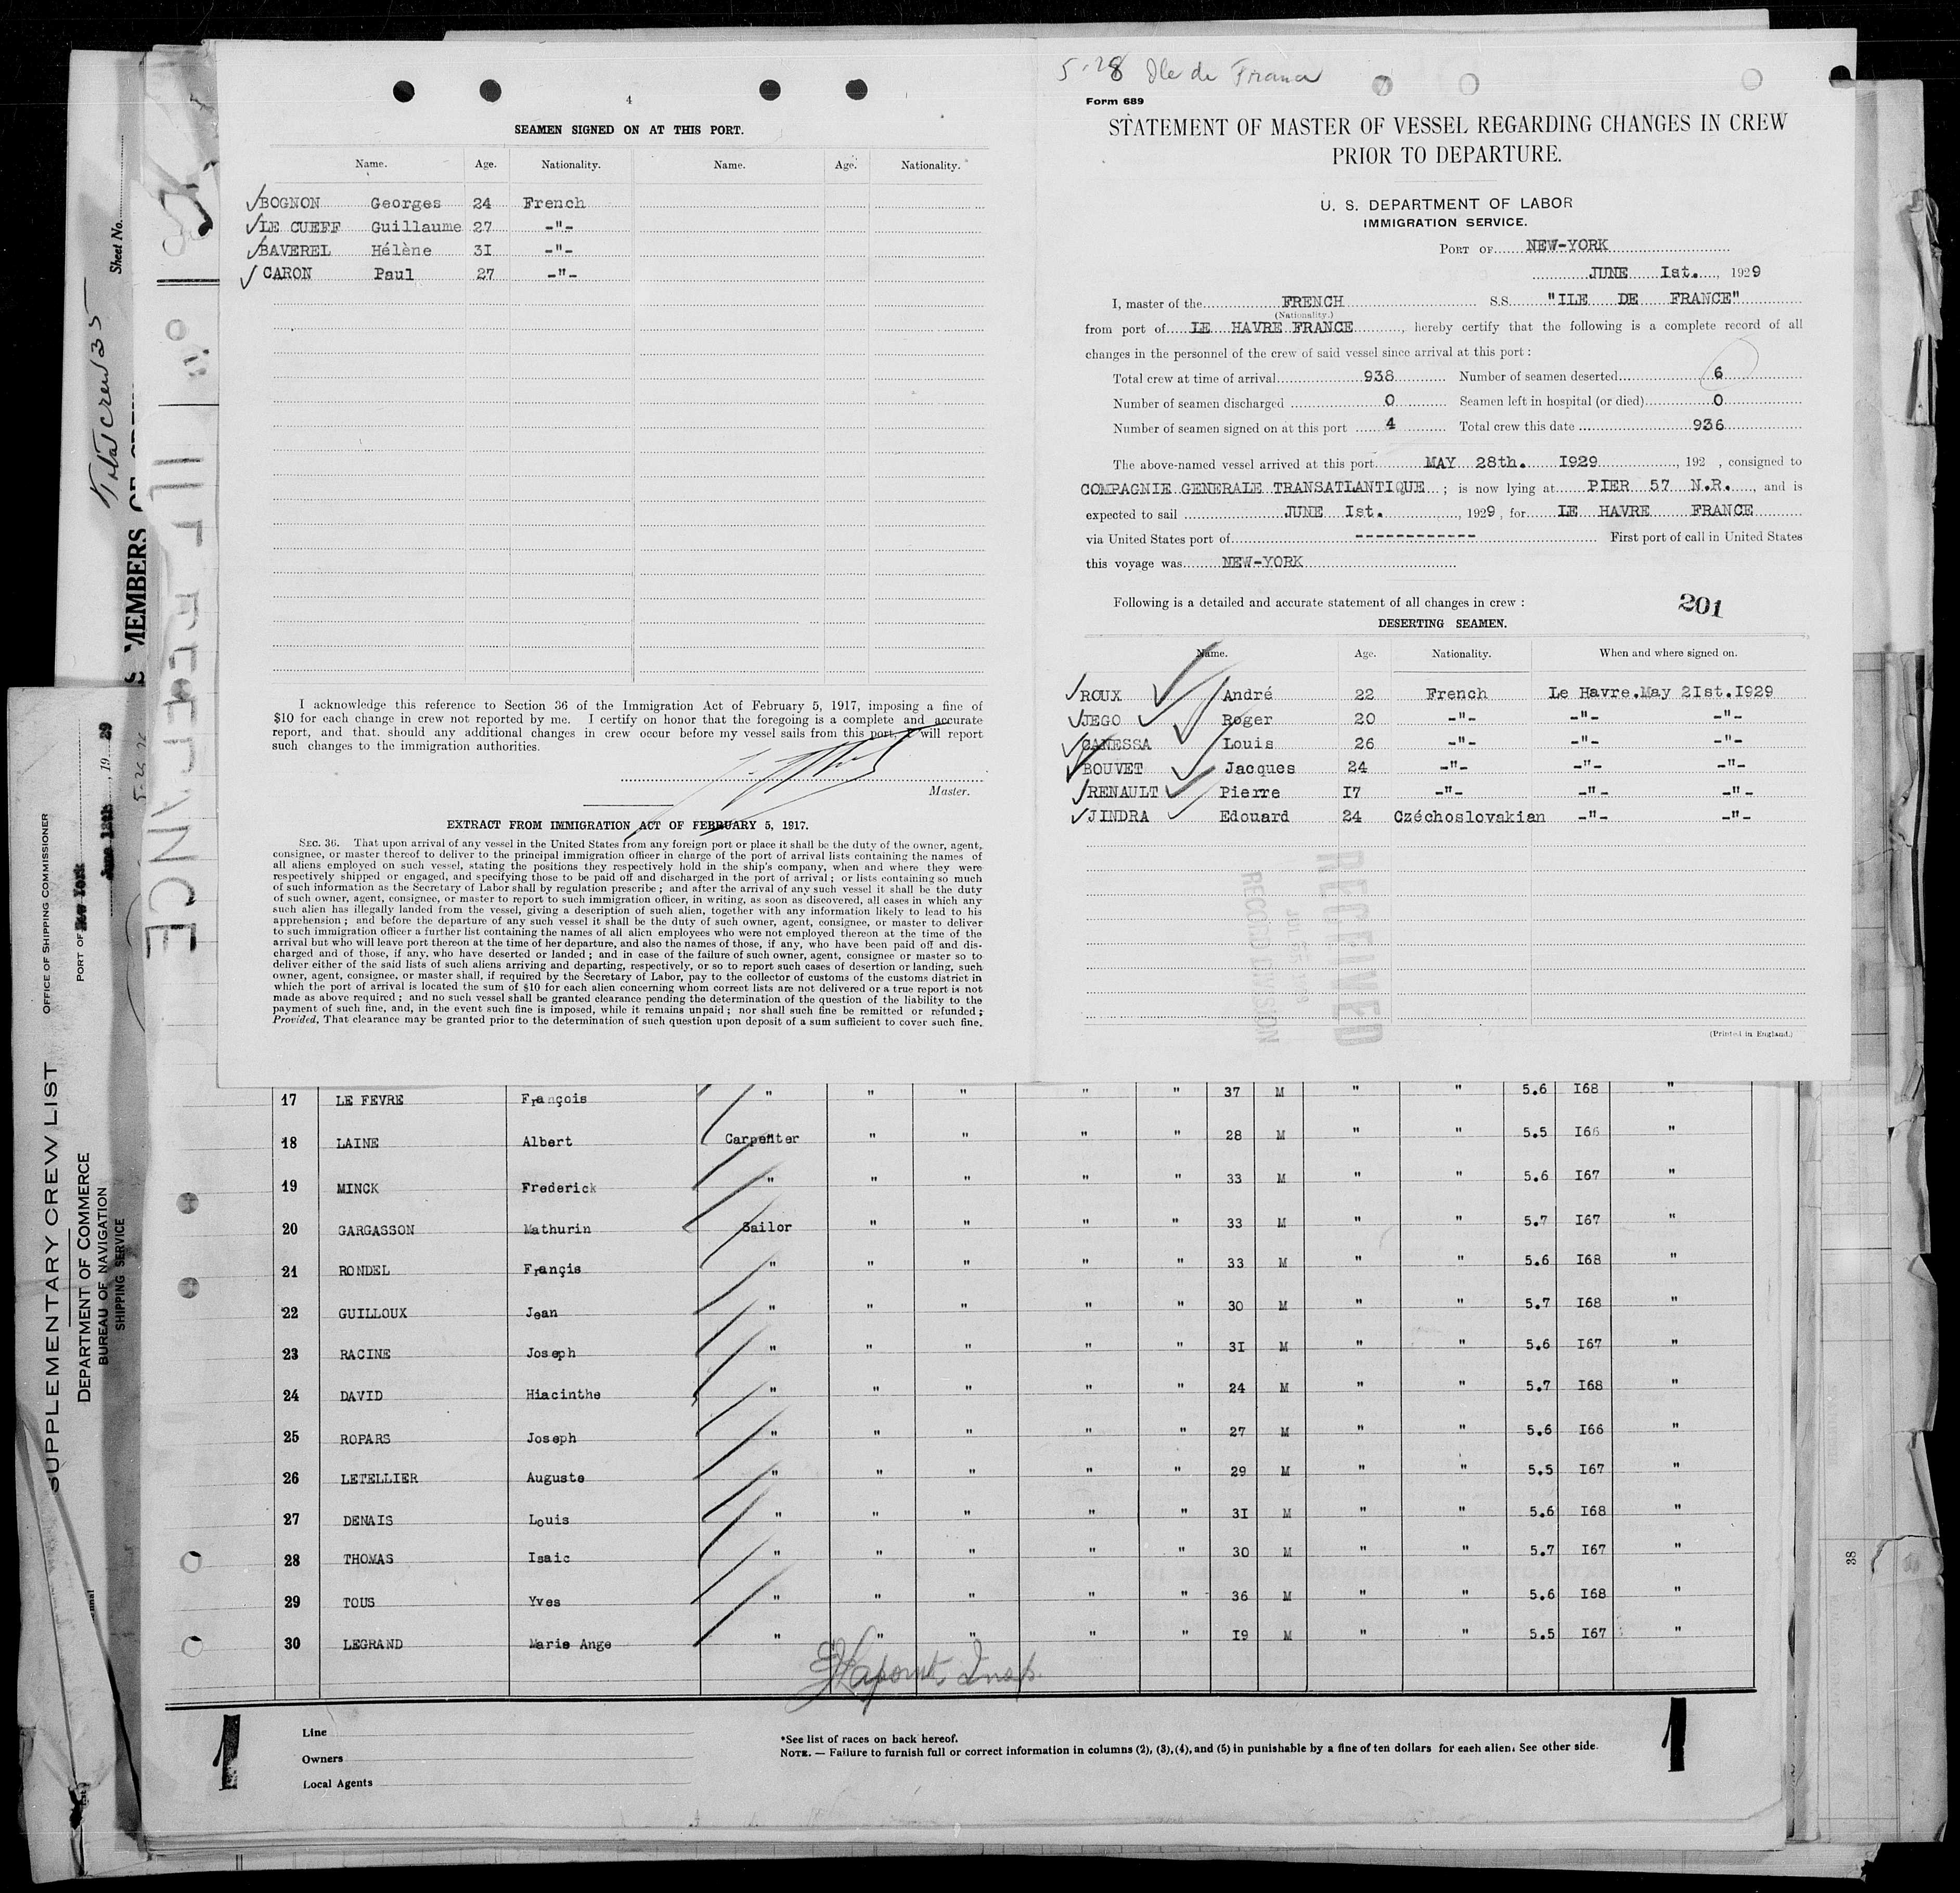 4
SEAMEN SIGNED ON AT THIS PORT.
Name. Age. Nationality. Name. Age. Nationality.
BOGNON Georges 24 French
LE CUEFF Guillaume 27 -"-
BAVEREL Hélène 3I -"-
CARON Paul 27 -"-
I acknowledge this reference to Section 36 of the Immigration Act of February 5, 1917, imposing a fine of
$10 for each change in crew not reported by me. I certify on honor that the foregoing is a complete and accurate
report, and that should any additional changes in crew occur before my vessel sails from this port, I will report
such changes to the immigration authorities.
Master.
EXTRACT FROM IMMIGRATION ACT OF FEBRUARY 5, 1917.
SEC. 36. That upon arrival of any vessel in the United States from any foreign port or place it shall be the duty of the owner, agent,
consignee, or master thereof to deliver to the principal immigration officer in charge of the port of arrival lists containing the names of
all aliens employed on such vessel, stating the positions they respectively hold in the ship's company, when and where they were
respectively shipped or engaged, and specifying those to be paid off and discharged in the port of arrival ; or lists containing so much
of such information as the Secretary of Labor shall by regulation prescribe ; and after the arrival of any such vessel it shall be the duty
of such owner, agent, consignee, or master to report to such immigration officer, in writing, as soon as discovered, all cases in which any
such alien has illegally landed from the vessel, giving a description of such alien, together with any information likely to lead to his
apprehension ; and before the departure of any such vessel it shall be the duty of such owner, agent, consignee, or master to deliver
to such immigration officer a further list containing the names of all alien employees who were not employed thereon at the time of the
arrival but who will leave port thereon at the time of her departure, and also the names of those, if any, who have been paid off and dis-
charged and of those, if any, who have deserted or landed ; and in case of the failure of such owner, agent, consignee or master so to
deliver either of the said lists of such aliens arriving and departing, respectively, or so to report such cases of desertion or landing, such
owner, agent, consignee, or master shall, if required by the Secretary of Labor, pay to the collector of customs of the customs district in
which the port of arrival is located the sum of $10 for each alien concerning whom correct lists are not delivered or a true report is not
made as above required ; and no such vessel shall be granted clearance pending the determination of the question of the liability to the
payment of such fine, and, in the event such fine is imposed, while it remains unpaid ; nor shall such fine be remitted or refunded ;
Provided, That clearance may be granted prior to the determination of such question upon deposit of a sum sufficient to cover such fine.
5-28 Ile de France
Form 689
STATEMENT OF MASTER OF VESSEL REGARDING CHANGES IN CREW
PRIOR TO DEPARTURE.
U. S. DEPARTMENT OF LABOR
IMMIGRATION SERVICE.
PORT OF NEW-YORK
JUNE Ist. , 1929
I, master of the FRENCH S.S. "ILE DE FRANCE"
(Nationality.)
from port of LE HAVRE FRANCE , hereby certify that the following is a complete record of all
changes in the personnel of the crew of said vessel since arrival at this port :
Total crew at time of arrival 938 Number of seamen deserted 6
Number of seamen discharged 0 Seamen left in hospital (or died) 0
Number of seamen signed on at this port 4 Total crew this date 936
The above-named vessel arrived at this port MAY 28th. I929 , 192 , consigned to
COMPAGNIE GENERALE TRANSATLANTIQUE ; is now lying at PIER 57 N.R. , and is
expected to sail JUNE Ist. , 1929, for LE HAVRE FRANCE
via United States port of ------------ First port of call in United States
this voyage was NEW-YORK
Following is a detailed and accurate statement of all changes in crew :
201
DESERTING SEAMEN.
Name. Age. Nationality. When and where signed on.
ROUX André 22 French Le Havre.May 2Ist.I929
JEGO Roger 20 -"- -"- -"-
CANESSA Louis 26 -"- -"- -"-
BOUVET Jacques 24 -"- -"- -"-
RENAULT Pierre I7 -"- -"- -"-
JINDRA Edouard 24 Czéchoslovakian -"- -"-
RECEIVED
RECORD DIVISION
(Printed in England.)
17 LE FEVRE François " " " " " 37 M " " 5.6 I68 "
18 LAINE Albert Carpenter " " " " 28 M " " 5.5 I66 "
19 MINCK Frederick " " " " " 33 M " " 5.6 I67 "
20 GARGASSON Mathurin Sailor " " " " 33 M " " 5.7 I67 "
21 RONDEL Françis " " " " " 33 M " " 5.6 I68 "
22 GUILLOUX Jean " " " " " 30 M " " 5.7 I68 "
23 RACINE Joseph " " " " " 3I M " " 5.6 I67 "
24 DAVID Hiacinthe " " " " " 24 M " " 5.7 I68 "
25 ROPARS Joseph " " " " " 27 M " " 5.6 I66 "
26 LETELLIER Auguste " " " " " 29 M " " 5.5 I67 "
27 DENAIS Louis " " " " " 3I M " " 5.6 I68 "
28 THOMAS Isaic " " " " " 30 M " " 5.7 I67 "
29 TOUS Yves " " " " " 36 M " " 5.6 I68 "
30 LEGRAND Marie Ange " " " " " I9 M " " 5.5 I67 "
Insp.
1 1
Line
Owners
Local Agents
*See list of races on back hereof.
NOTE. — Failure to furnish full or correct information in columns (2), (3), (4), and (5) in punishable by a fine of ten dollars for each alien. See other side.
Sheet No.
Total crew 35
MEMBERS
SUPPLEMENTARY CREW LIST
DEPARTMENT OF COMMERCE
BUREAU OF NAVIGATION
SHIPPING SERVICE
OFFICE OF SHIPPING COMMISSIONER
PORT OF New York
June 12th , 19 29
38